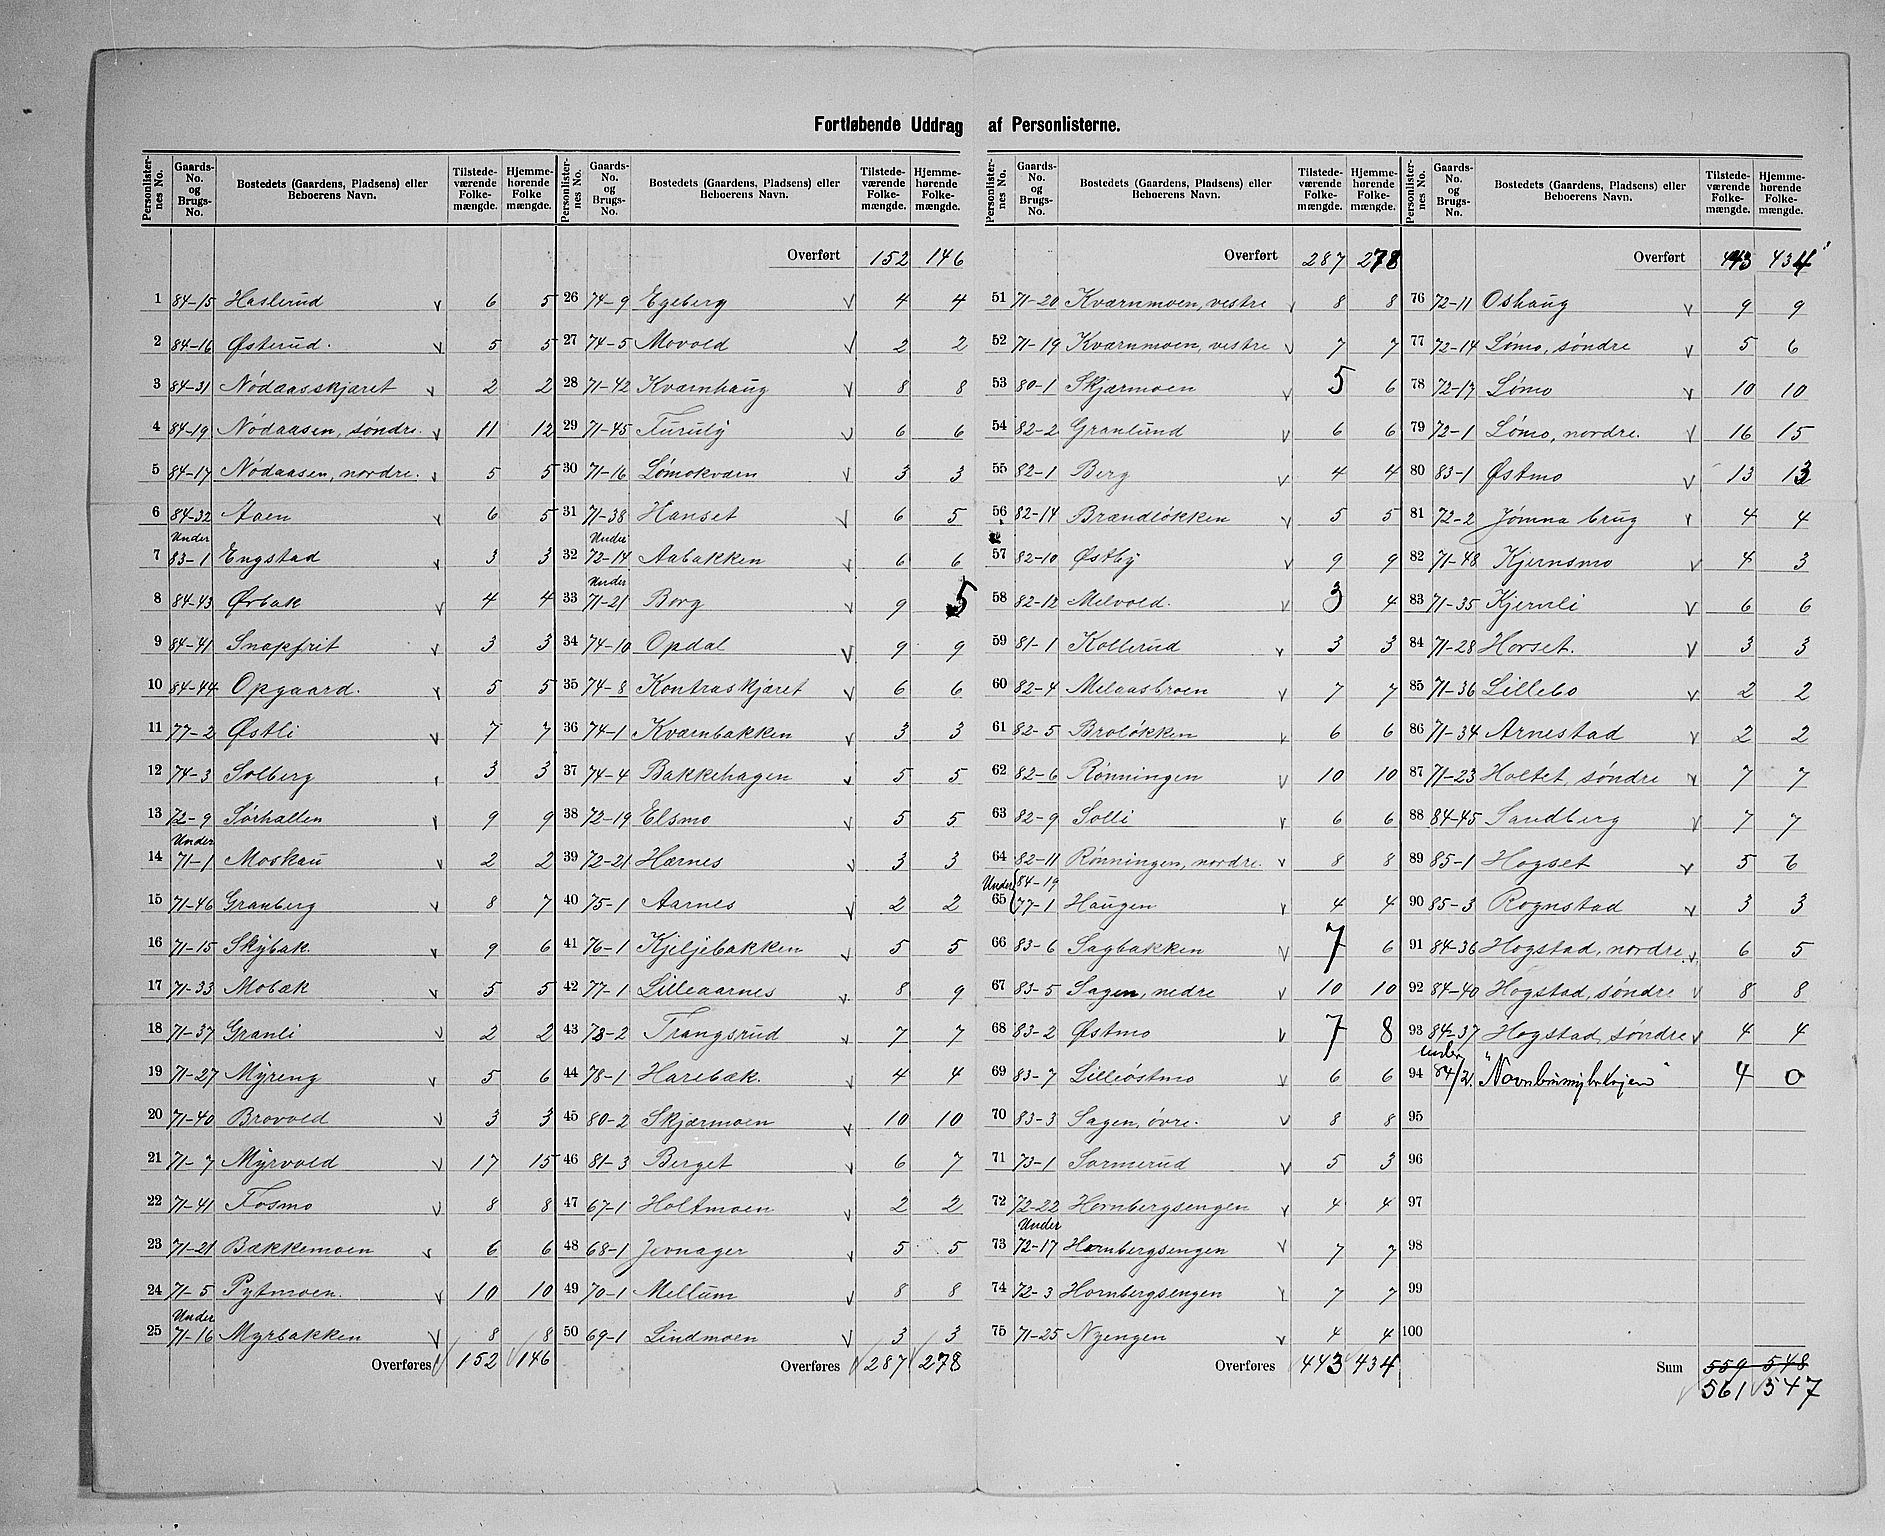 Fortløbende Uddrag af Personlisterne.
Personlister-nes No. Gaards-No. og Brugs-No. Bostedets (Gaardens, Pladsens) eller Beboerens Navn. Tilstede-værende Folke-mængde. Hjemme-hørende Folke mængde.
1 84-15 Haslerud v 6 5
2 84-16 Østerud. v 5 5
3 84-31 Nødaasskjæret v 2 2
4 84-19 Nødaasen, søndre. v 11 12
5 84-17 Nødaasen, nordre. v 5 5
6 84-32 Aaen v 6 5
Under
7 83-1 Engstad v 3 3
8 84-43 Ørbak v 4 4
9 84-41 Snapfrit v 3 3
10 84-44 Opgaard. v 5 5
11 77-2 Østli v 7 7
12 74-3 Solberg v 3 3
13 72-9 Sørhallen v 9 9
Under
14 71-1 Moskau v 2 2
15 71-46 Granberg v 8 7
16 71-15 Skybak. v 9 6
17 71-33 Mobæk v 5 5
18 71-37 Granli v 2 2
19 71-27 Myreng v 5 6
20 71-40 Brovold v 3 3
21 71-7 Myrvold v 17 15
22 71-41 Fosmo v 8 8
23 71-21 Bækkemoen v 6 6
24 71-5 Pytmoen. v 10 10
Under
25 71-16 Myrbakken v 8 8
Overføres 152 146
Personlister-nes No. Gaards-No. og Brugs-No. Bostedets (Gaardens, Pladsens) eller Beboerens Navn. Tilstede-værende Folke-mængde. Hjemme-hørende Folke-mængde.
Overført 152 146
26 74-9 Egeberg v 4 4
27 74-5 Movold v 2 2
28 71-42 Kværnhaug v 8 8
29 71-45 Furuly v 6 6
30 71-16 Lømokvæn v 3 3
31 71-38 Hanset v 6 5
Under
32 72-14 Aabakken v 6 6
Under
33 71-21 Borg v 9 5
34 74-10 Opdal v 9 9
35 74-8 Kontraskjæret v 6 6
36 74-1 Kværnbakken v 3 3
37 74-4 Bakkehagen v 5 5
38 72-19 Elsmo v 5 5
39 72-21 Hærnes v 3 3
40 75-1 Aarnes v 2 2
41 76-1 Kjeljebakken v 5 5
42 77-1 Lilleaarnes v 8 9
43 78-2 Trangsrud v 7 7
44 78-1 Harebæk. v 4 4
45 80-2 Skjærmoen v 10 10
46 81-3 Berget v 6 7
47 67-1 Holtmoen v 2 2
48 68-1 Jevnager v 5 5
49 70-1 Mellum v 8 8
50 69-1 Lindmoen v 3 3
Overføres 287 278
Personlister-nes No. Gaards-No. og Brugs-No. Bostedets (Gaardens, Pladsens) eller Beboerens Navn. Tilstede-værende Folke-mængde. Hjemme-hørende Folke-mængde.
Overført 287 278
51 71-20 Kværnmoen, vestre v 8 8
52 71-19 Kværnmoen, vestre v 7 7
53 80-1 Skjærmoen v 5 6
54 82-2 Granlund v 6 6
55 82-1 Berg v 4 4
56 82-14 Brændløkken v 5 5
57 82-10 Østby v 9 9
58 82-12 Melvold. v 3 4
59 81-1 Kollerud v 3 3
60 82-4 Melaasbroen v 7 7
61 82-5 Broløkken v 6 6
62 82-6 Rønningen v 10 10
63 82-9 Solli v 6 6
64 82-11 Rønningen, nordre. v 8 8
Under 84-19
65 77-1 Haugen v 4 4
66 83-6 Sagbakken v 7 6
67 83-5 Sagen, nedre v 10 10
68 83-2 Østmo v 7 8
69 83-7 Lilleøstmo v 6 6
70 83-3 Sagen, øvre. v 8 8
71 73-1 Sormerud v 5 3
72 72-22 Hornbergsengen v 4 4
Under
73 72-17 Hornbergsengen v 7 7
74 72-3 Hornbergsengen v 7 7
75 71-25 Nyengen v 4 4
Overføres 443 434
Personlister-nes No. Gaards-No. og Brugs-No. Bostedets (Gaardens, Pladsens) eller Beboerens Navn. Tilstede-værende Folke-mængde. Hjemme-hørende Folke-mængde.
Overført 443 434
76 72-11 Oshaug v 9 9
77 72-14 Lømo, søndre v 5 6
78 72-17 Lømo v 10 10
79 72-1 Lømo, nordre. v 16 15
80 83-1 Østmo v 13 13
81 72-2 Jømna brug v 4 4
82 71-48 Kjernsmo v 4 3
83 71-35 Kjernli v 6 6
84 71-28 Horset. v 3 3
85 71-36 Lillebo v 2 2
86 71-34 Arnestad v 2 2
87 71-23 Holtet, søndre v 7 7
88 84-45 Sandberg v 7 7
89 85-1 Hogset v 5 6
90 85-3 Rognstad v 3 3
91 84-36 Hogstad, nordre. v 6 5
92 84-40 Hogstad, søndre. v 8 8
93 84-37 Hogstad, søndre v 4 4
under
94 84/2. 4 0
95
96
97
98
99
100
Sum 559 548
561 547